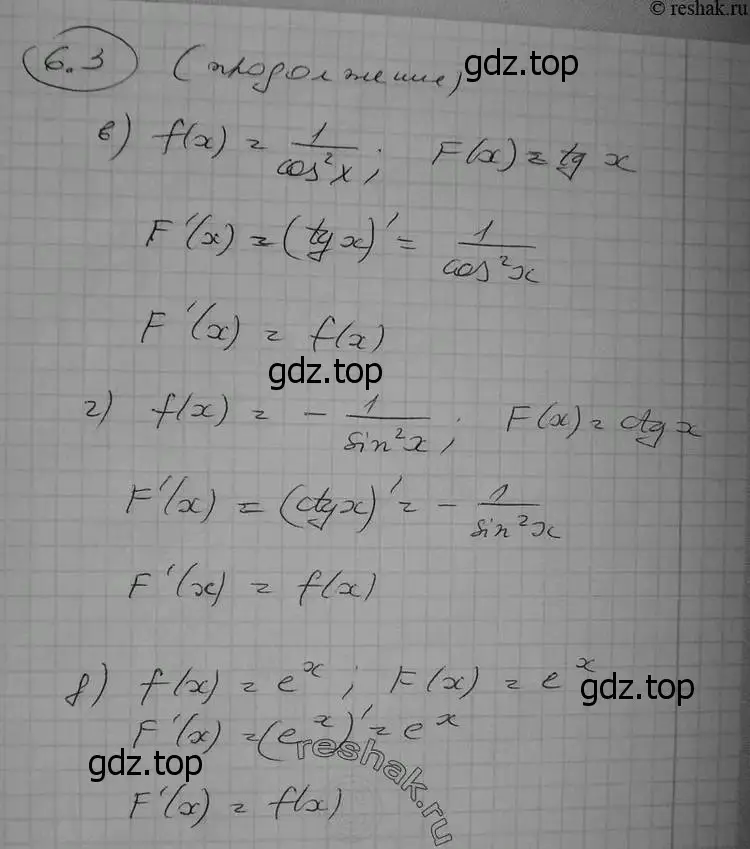 © reshak.ru
6.3 (продолжение)
gdz.top
в) f(x) = 1/cos²x; F(x) = tg x
F'(x) = (tg x)' = 1/cos²x
F'(x) = f(x)
gdz.top
г) f(x) = - 1/sin²x; F(x) = ctg x
F'(x) = (ctg x)' = - 1/sin²x
F'(x) = f(x)
д) f(x) = eˣ; F(x) = eˣ
gdz.top
F'(x) = (eˣ)' = eˣ
reshak.ru
gdz.top
F'(x) = f(x)